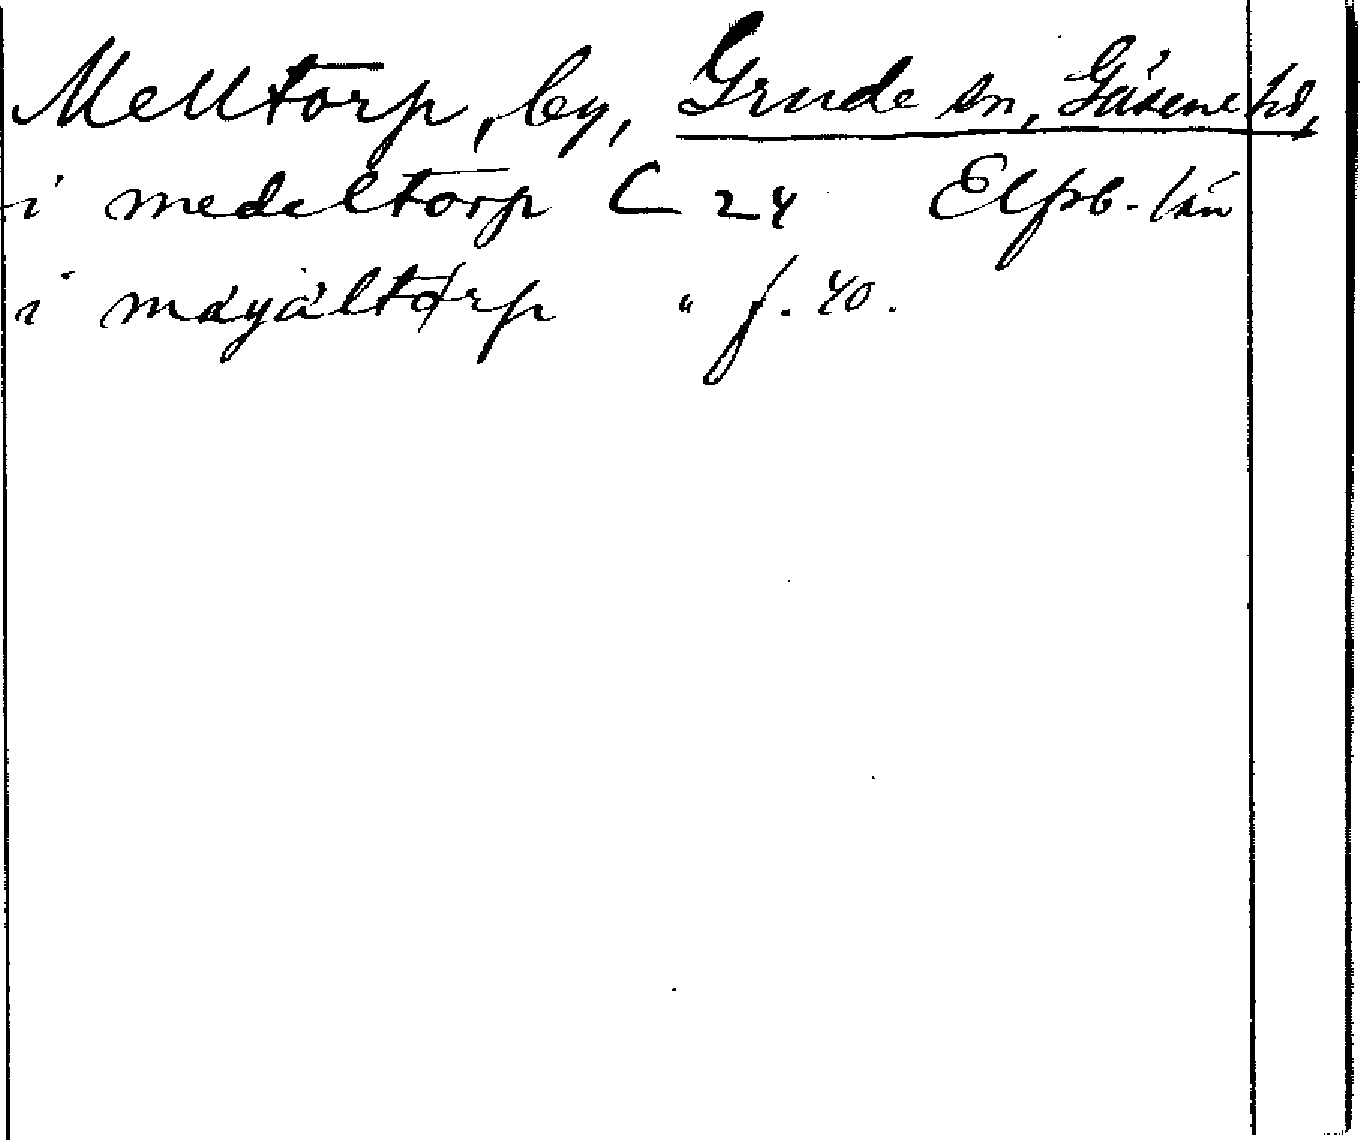 Melltorp, by, Grude sn, Gäsene hd,
i medeltorp C 24 Elfsb. län
i mäyältørp " f. 40.